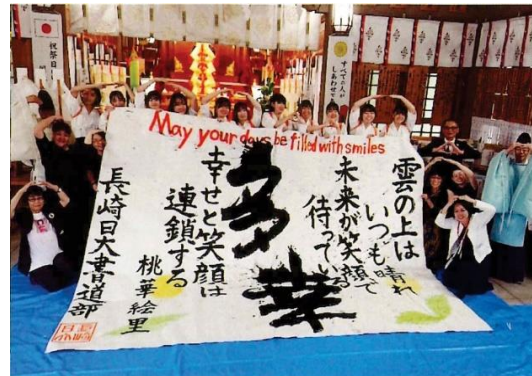 May your days be filled with smiles
雲の上は
いつも晴れ
未来が笑顔で
待っている
多幸
幸せと笑顔は
連鎖する
桃華絵里
長崎日大書道部
すべての人が
しあわせで